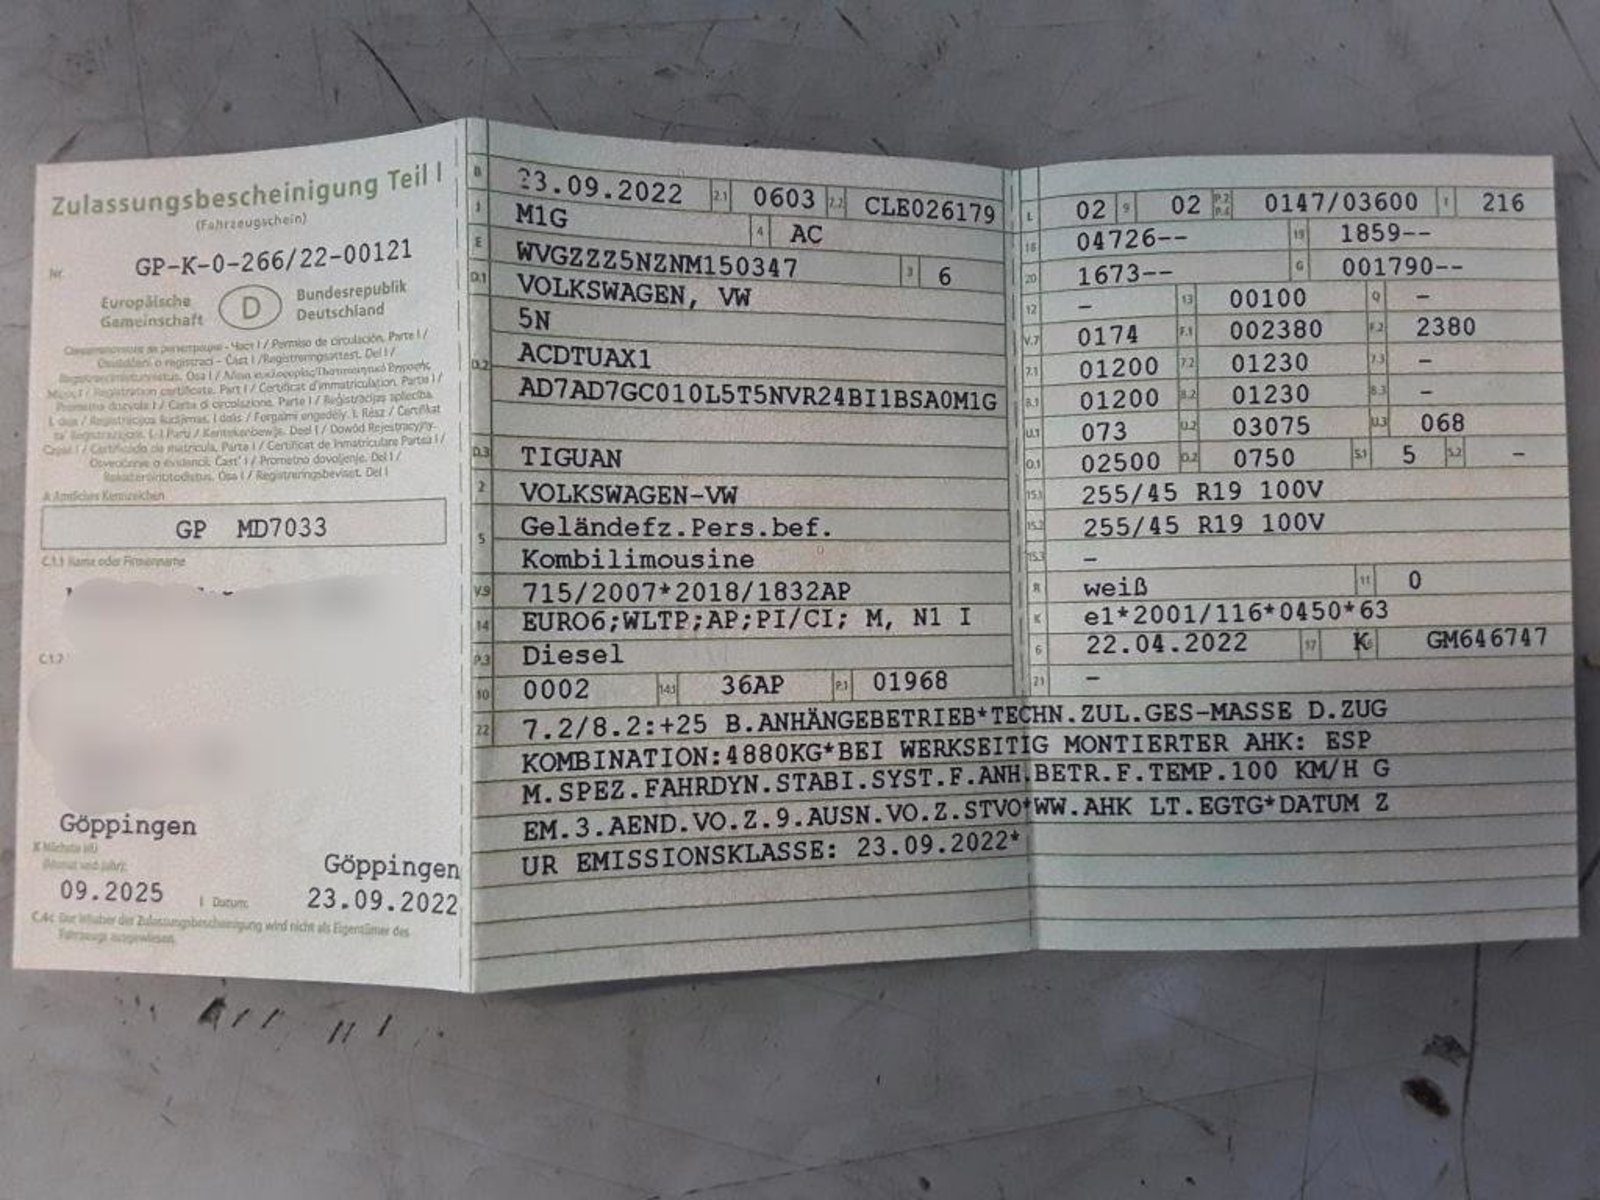 Zulassungsbescheinigung Teil I
(Fahrzeugschein)
Nr. GP-K-0-266/22-00121
Europäische Gemeinschaft D Bundesrepublik Deutschland
A Amtliches Kennzeichen
GP MD7033
C.1.1 Name oder Firmenname
Göppingen
X Nächste HU
(Monat und Jahr):
Göppingen
09.2025 I Datum: 23.09.2022
C.4c Der Inhaber der Zulassungsbescheinigung wird nicht als Eigentümer des
Fahrzeugs ausgewiesen.
B 23.09.2022 2.1 0603 2.2 CLE026179
J M1G 4 AC
E WVGZZZ5NZNM150347 3 6
D.1 VOLKSWAGEN, VW
5N
D.2 ACDTUAX1
AD7AD7GC010L5T5NVR24BI1BSA0M1G
D.3 TIGUAN
2 VOLKSWAGEN-VW
5 Geländefz.Pers.bef.
Kombilimousine
V.9 715/2007*2018/1832AP
14 EURO6;WLTP;AP;PI/CI; M, N1 I
P.3 Diesel
10 0002 14.1 36AP P.1 01968
L 02 9 02 P.2 P.4 0147/03600 T 216
18 04726-- 19 1859--
20 1673-- G 001790--
12 - 13 00100 Q -
V.7 0174 F.1 002380 F.2 2380
7.1 01200 7.2 01230 7.3 -
8.1 01200 8.2 01230 8.3 -
U.1 073 U.2 03075 U.3 068
O.1 02500 O.2 0750 S.1 5 S.2 -
15.1 255/45 R19 100V
15.2 255/45 R19 100V
15.3 -
R weiß 11 0
K e1*2001/116*0450*63
6 22.04.2022 17 K 16 GM646747
21 -
22 7.2/8.2:+25 B.ANHÄNGEBETRIEB*TECHN.ZUL.GES-MASSE D.ZUG
KOMBINATION:4880KG*BEI WERKSEITIG MONTIERTER AHK: ESP
M.SPEZ.FAHRDYN.STABI.SYST.F.ANH.BETR.F.TEMP.100 KM/H G
EM.3.AEND.VO.Z.9.AUSN.VO.Z.STVO*WW.AHK LT.EGTG*DATUM Z
UR EMISSIONSKLASSE: 23.09.2022*